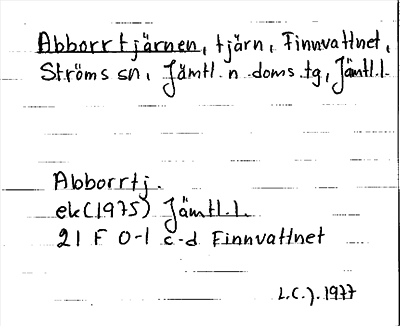 Abborrtjärnen, tjärn, Finnvattnet,
Ströms sn, Jämtl. n. doms.tg, Jämtl.l.
Abborrtj.
ek (1975) Jämtl.l.
21 F 0-1 c-d Finnvattnet
L.C.J. 1977